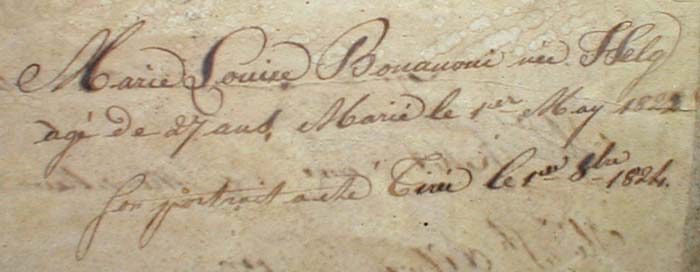 Marie Louise Bonavoni née Helg
agé de 27 ans, Marié le 1er May 1822
son portrait a eté Tiré le 1er 8bre 1824.